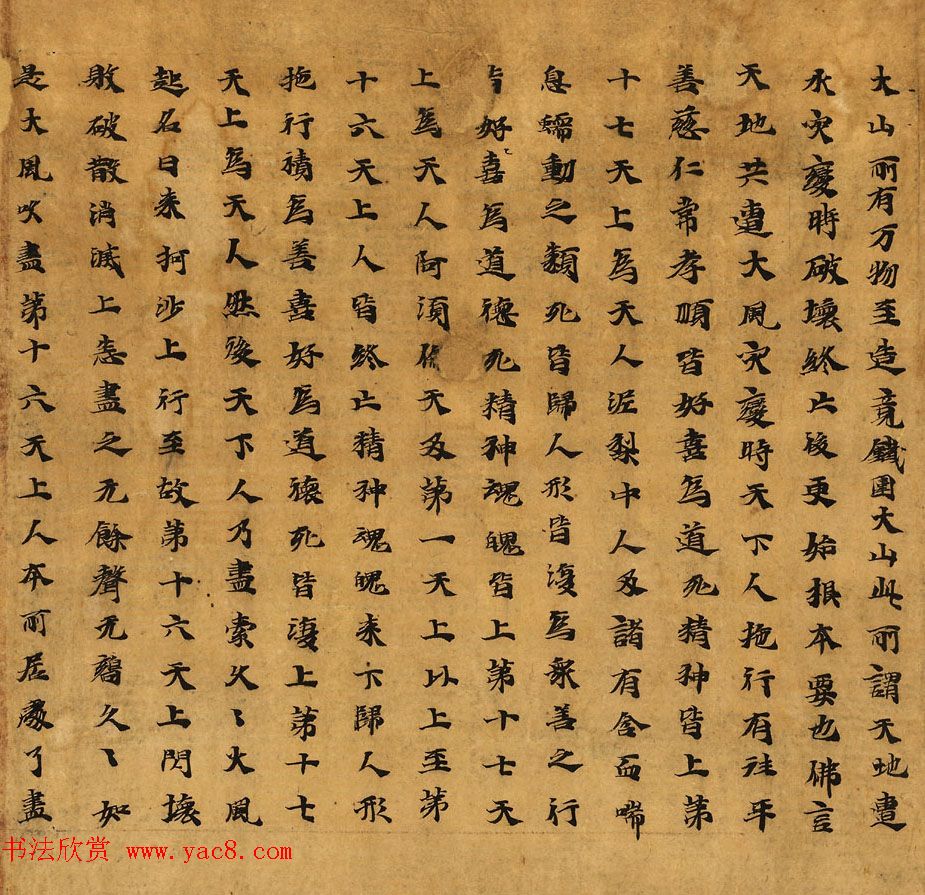 大山所有万物至造竟鐵圍大山此所謂天地遭
水灾變時破壞終亡後更始根本要也佛言
天地共遭大風灾變時天下人施行有法平
善慈仁常孝順皆好憙為道死精神皆上第
十七天上為天人泥梨中人及諸有含血喘
息蠕動之類死皆歸人形皆復為衆善之行
皆好憙為道德死精神魂魄皆上第十七天
上為天人阿須倫天及第一天上以上至第
十六天上人皆終亡精神魂魄来下歸人形
施行積為善憙好為道德死皆復上第十七
天上為天人然後天下人乃盡索久〻火風
起名曰来柯沙上行至故第十六天上閇壞
敗破散消滅上悉盡之无餘聲无久〻如
是大風吹盡第十六天上人本所居處了盡
书法欣赏 www.yac8.com